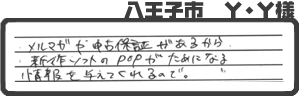 八王子市 Y・Y様
・メルマガや中古保証があるから
・新作ソフトのPOPがためになる
情報を与えてくれるので。